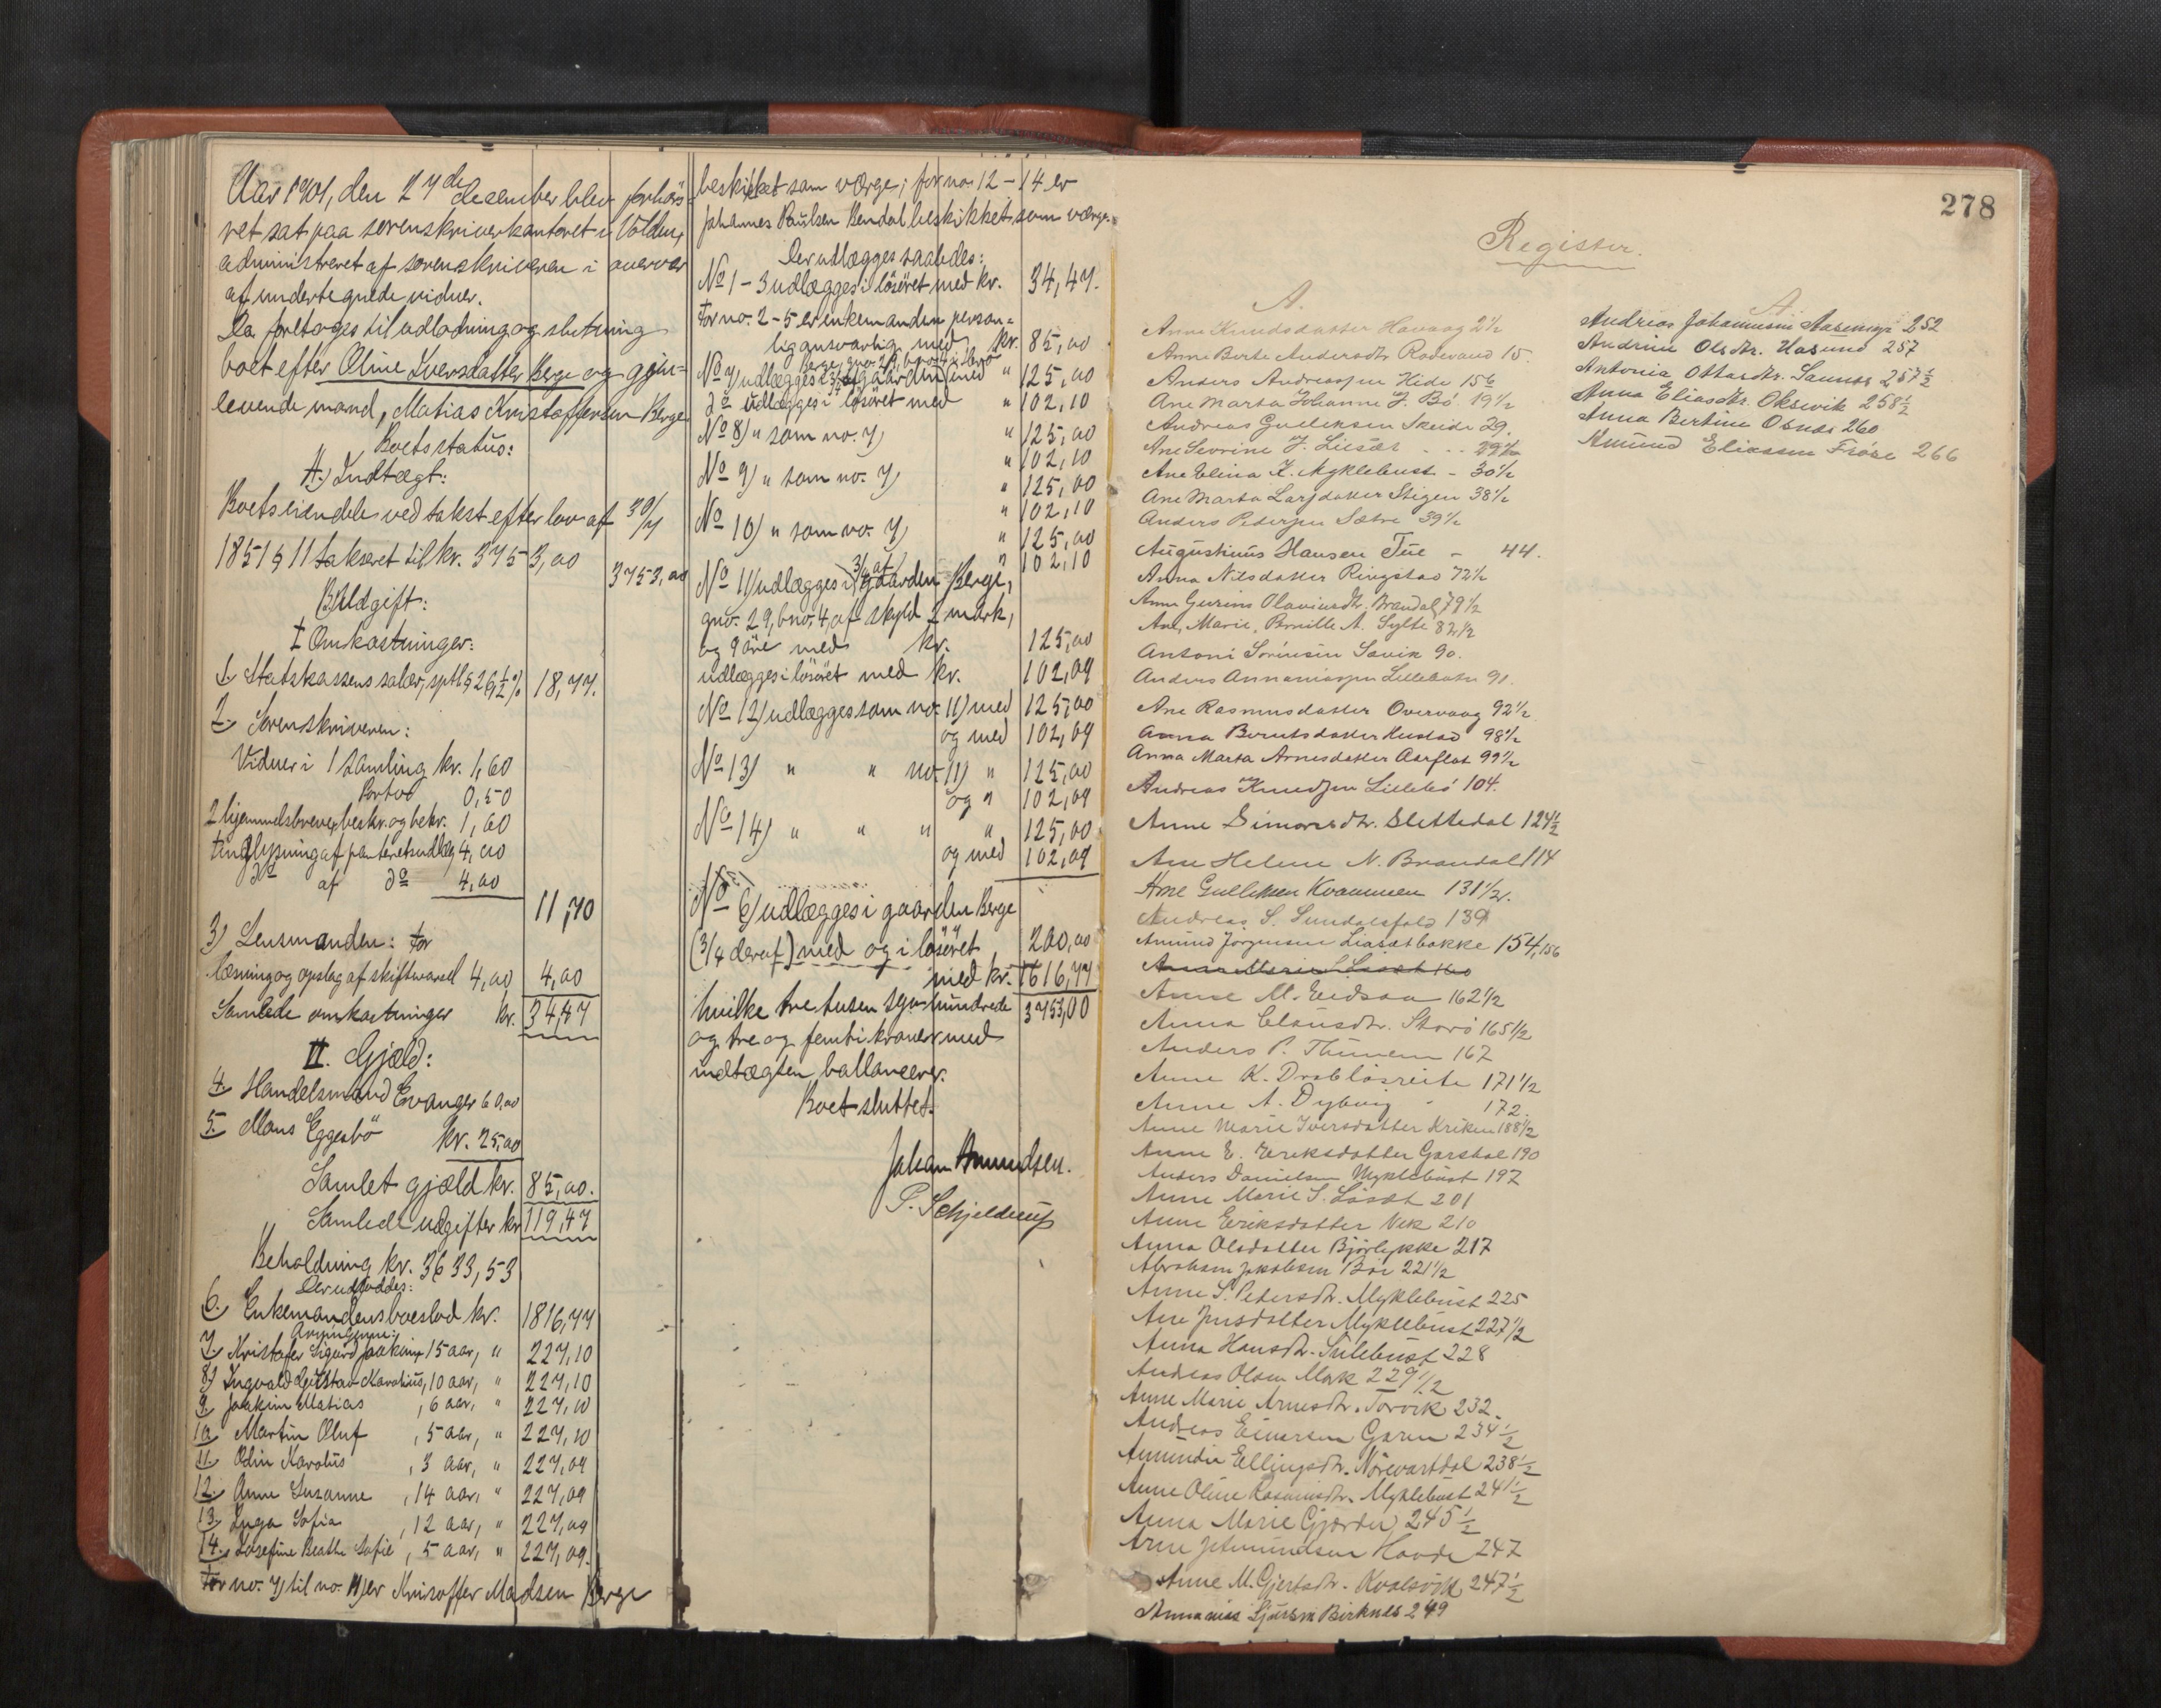 Aar 1901, den 27de december blev forhörs-
ret sat paa sorenskriverkontoret i Volden,
administreret af sorenskriveren i overvær
af undertegnede vidner.
Da foretoges til udlodning og slutning
boet efter Oline Iversdatter Berge og gjen-
levende mand, Matias Kristoffersen Berge
Boets status:
A.) Indtægt:
Boets eiendele ved takst efter lov af 30/7
1851 § 11 takseret til kr. 3753,00
3753,00
B.) Udgift:
I Omkostninger:
1. Statskassens salær, sptl § 26 ½ % 18,77.
2. Sorenskriveren:
Vidner i 1 samling kr. 1,60
Porto 0,50
2 hjemmelsbreve, beskr. og bekr. 1,60
tinglysning af panteretsudlæg 4,00
do af do 4,00
11,70
3) Lensmanden: for
læsning og opslag af skiftvarsel 4,00 4,00
Samlede omkostninger kr. 34,47
II. Gjæld:
4. Handelsmand Evanger 60,00
5. Mons Eggesbö kr. 25,00
Samlet gjæld kr. 85,00.
Samlede udgifter kr. 119,47
Beholdning kr. 3633,53
Der udloddes:
6. Enkemandens boeslod kr. 1816,77
Arvingerne:
7. Kristofer Sigurd Joakim, 15 aar, " 227,10
8) Ingvald Gustav Karolius, 10 aar, " 227,10
9. Joakim Matias, 6 aar, " 227,10
10 Martin Oluf, 5 aar, " 227,10
11. Odin Karolus, 3 aar, " 227,09
12. Anne Susanne, 14 aar, " 227,09
13. Inga Sofia, 12 aar, " 227,09
14. Josefine Beathe Sofie, 5 aar, " 227,09.
For no. 7) til no. 11) er Kristoffer Madsen Berge
beskikket som værge; for no. 12-14 er
Johannes Paulsen Bendal beskikket som værge.
Der udlægges saaledes:
No 1-3 udlægges i løsöret med kr. 34,47.
For no. 2-5 er enkemanden person-
lig ansvarlig med kr. 85,00
Berge, gno. 29, bno. 4
No 7) udlægges i gaarden med " 125,00
do udlægges i løsöret med " 102,10
No 8) " som no. 7) " 125,00
" 102,10
No 9) " som no. 7) " 125,00
" 102,10
No 10) " som no. 7) " 125,00
" 102,10
No 11) udlægges i 3/4 af gaarden Berge,
gno. 29, bno. 4, af skyld 2 mark,
og 9 öre med kr. 125,00
udlægges i løsöret med kr. 102,09
No 12) udlægges som no. 11) med 125,00
og med 102,09
No 13) " " no. 11) " 125,00
og " 102,09
No 14) " " " " 125,00
og med 102,09
No 6) udlægges i gaarden Berge
(3/4 deraf) med og i løsöret 200,00
med kr. 1616,77
hvilke tre tusen syv hundrede 3753,00
og tre og femti kroner med
indtægten ballancerer.
Boet sluttet.
Johan Amundsen.
P. Schjelderup
278
Register.
A.
Anne Knudsdatter Havaag 2½
Anne Berte Andersdtr. Rodevand 15.
Anders Andreassen Hide 15½
Ane Marta Johanne J. Bö 19½
Andreas Gulliksen Skeide 29.
Ane Sevrine J. Lisæt
Ane Elina K. Myklebust - 30½
Ane Marta Larsdatter Stigen 38½
Anders Pedersen Sætre 39½
Augustinus Hansen Tue - 44.
Anna Nilsdatter Ringstad 72½
Anne Gurine Olaviusdtr. Brandal 79½
Ane, Marie, Pernille A. Sylte 82½
Antoni Sörensen Savik 90.
Anders Annaniassen Lillebø 91.
Ane Rasmusdatter Overvaag 92½
Anna Berntsdatter Hustad 98½
Anna Marta Arnesdatter Aarflot 99½
Andreas Knudsen Lillebö 104.
Anne Simonsdtr. Slettedal 124½
Ane Helene N. Brandal 114
Arne Gulliksen Kvammen 131½.
Andreas S. Sundalsfold 139
Amund Jörgensen Liasætbakke 154, 156
Anne Marie S. Lisæt 160
Anne M. Eidsaa 162½
Anna Clausdtr. Storö 165½
Anders P. Thunem 167
Anne K. Drabløsreite 171½
Anne A. Dybvig 172.
Anne Marie Iversdatter Kriken 188½
Anne E. Eriksdatter Garshol 190
Anders Danielsen Myklebust 197
Anne Marie S. Lisæt 201
Anne Eriksdatter Vik 210
Anna Olsdatter Bjørlykke 217
Abraham Jakobsen Böe 221½
Anne S. Pedersdtr. Myklebust 225
Ane Jensdatter Myklebust 227½
Anna Hansdtr. Sulebust 228
Andreas Olsen Mork 229½
Anne Marie Arnesdtr. Torvik 232.
Andreas Einarsen Garen 234½
Amundia Ellingsdtr. Nörevartdal 238½
Anne Oline Rasmusdtr. Myklebust 241½
Anna Marie Gjerde 245½
Arne J. Amundsen Hovde 247
Anne M. Gjertsdtr. Kvalsvik 247½
Annanias Sjursen Birknes 249
A.
Andreas Johannesen Aasemyr 252
Andrine Olsdtr. Hasund 257
Antonia Ottardtr. Saunes 257½
Anna Eliasdtr. Okswik 258½
Anna Bertine Osnes 260
Amund Eliassen Fröse 266